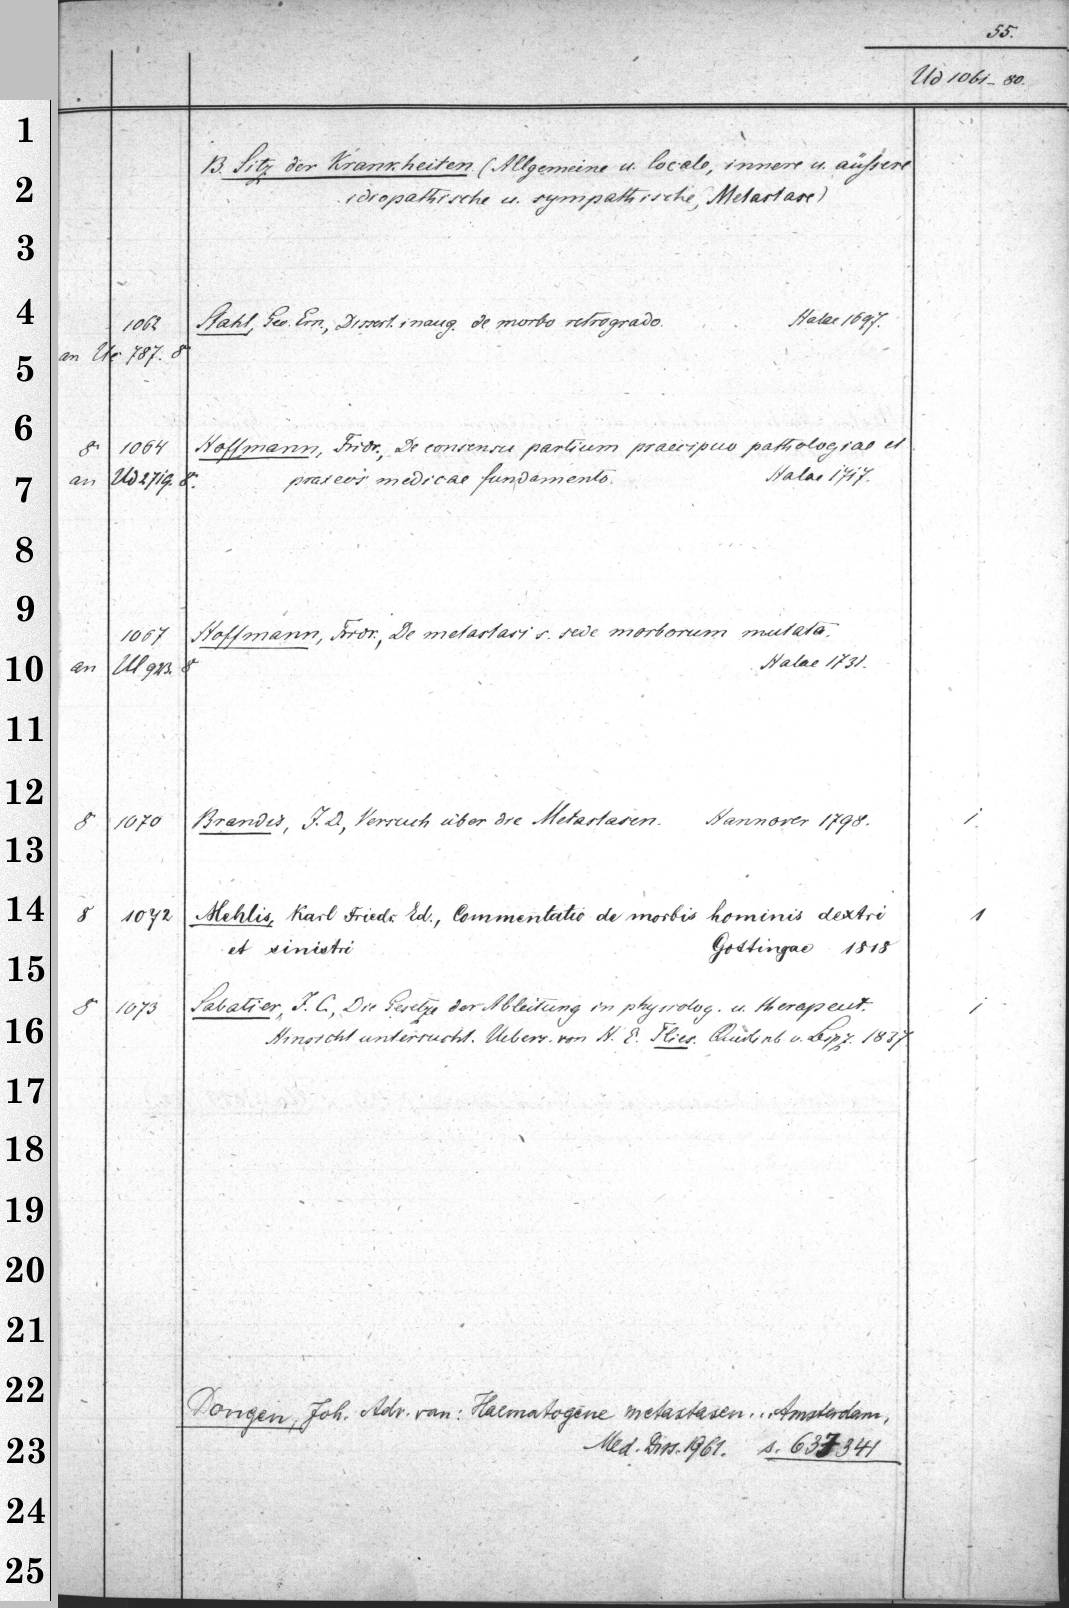 55.
Ud 1061-80.
B. Sitz der Krankheiten (Allgemeine u. locale, innere u. äussere
idiopathische u. sympathische, Metastase)
1062 Stahl, Geo. Ern., Dissert. inaug. de morbo retrogrado. Halae 1697.
an Ue 787. 8
8 1064 Hoffmann, Fridr., De consensu partium praecipuo pathologiae et
an Ud 2719. 8. praxeos medicae fundamento. Halae 1717.
1067 Hoffmann, Fridr., De metastasi s. sede morborum mutata.
an Ul 923. 8 Halae 1731.
8 1070 Brandis, J. D., Versuch über die Metastasen. Hannover 1798. 1.
8 1072 Mehlis, Karl Friedr. Ed., Commentatio de morbis hominis dextri 1
et sinistri Gottingae 1818
8 1073 Sabatier, J. C., Die Gesetze der Ableitung in physiolog. u. therapeut. 1
Hinsicht untersucht. Uebers. von H. E. Flies. Quedlinb. u. Leipz. 1837
Dongen, Joh. Adr. van: Haematogene metastasen... Amsterdam,
Med. Diss. 1961. s. 637341
1
2
3
4
5
6
7
8
9
10
11
12
13
14
15
16
17
18
19
20
21
22
23
24
25